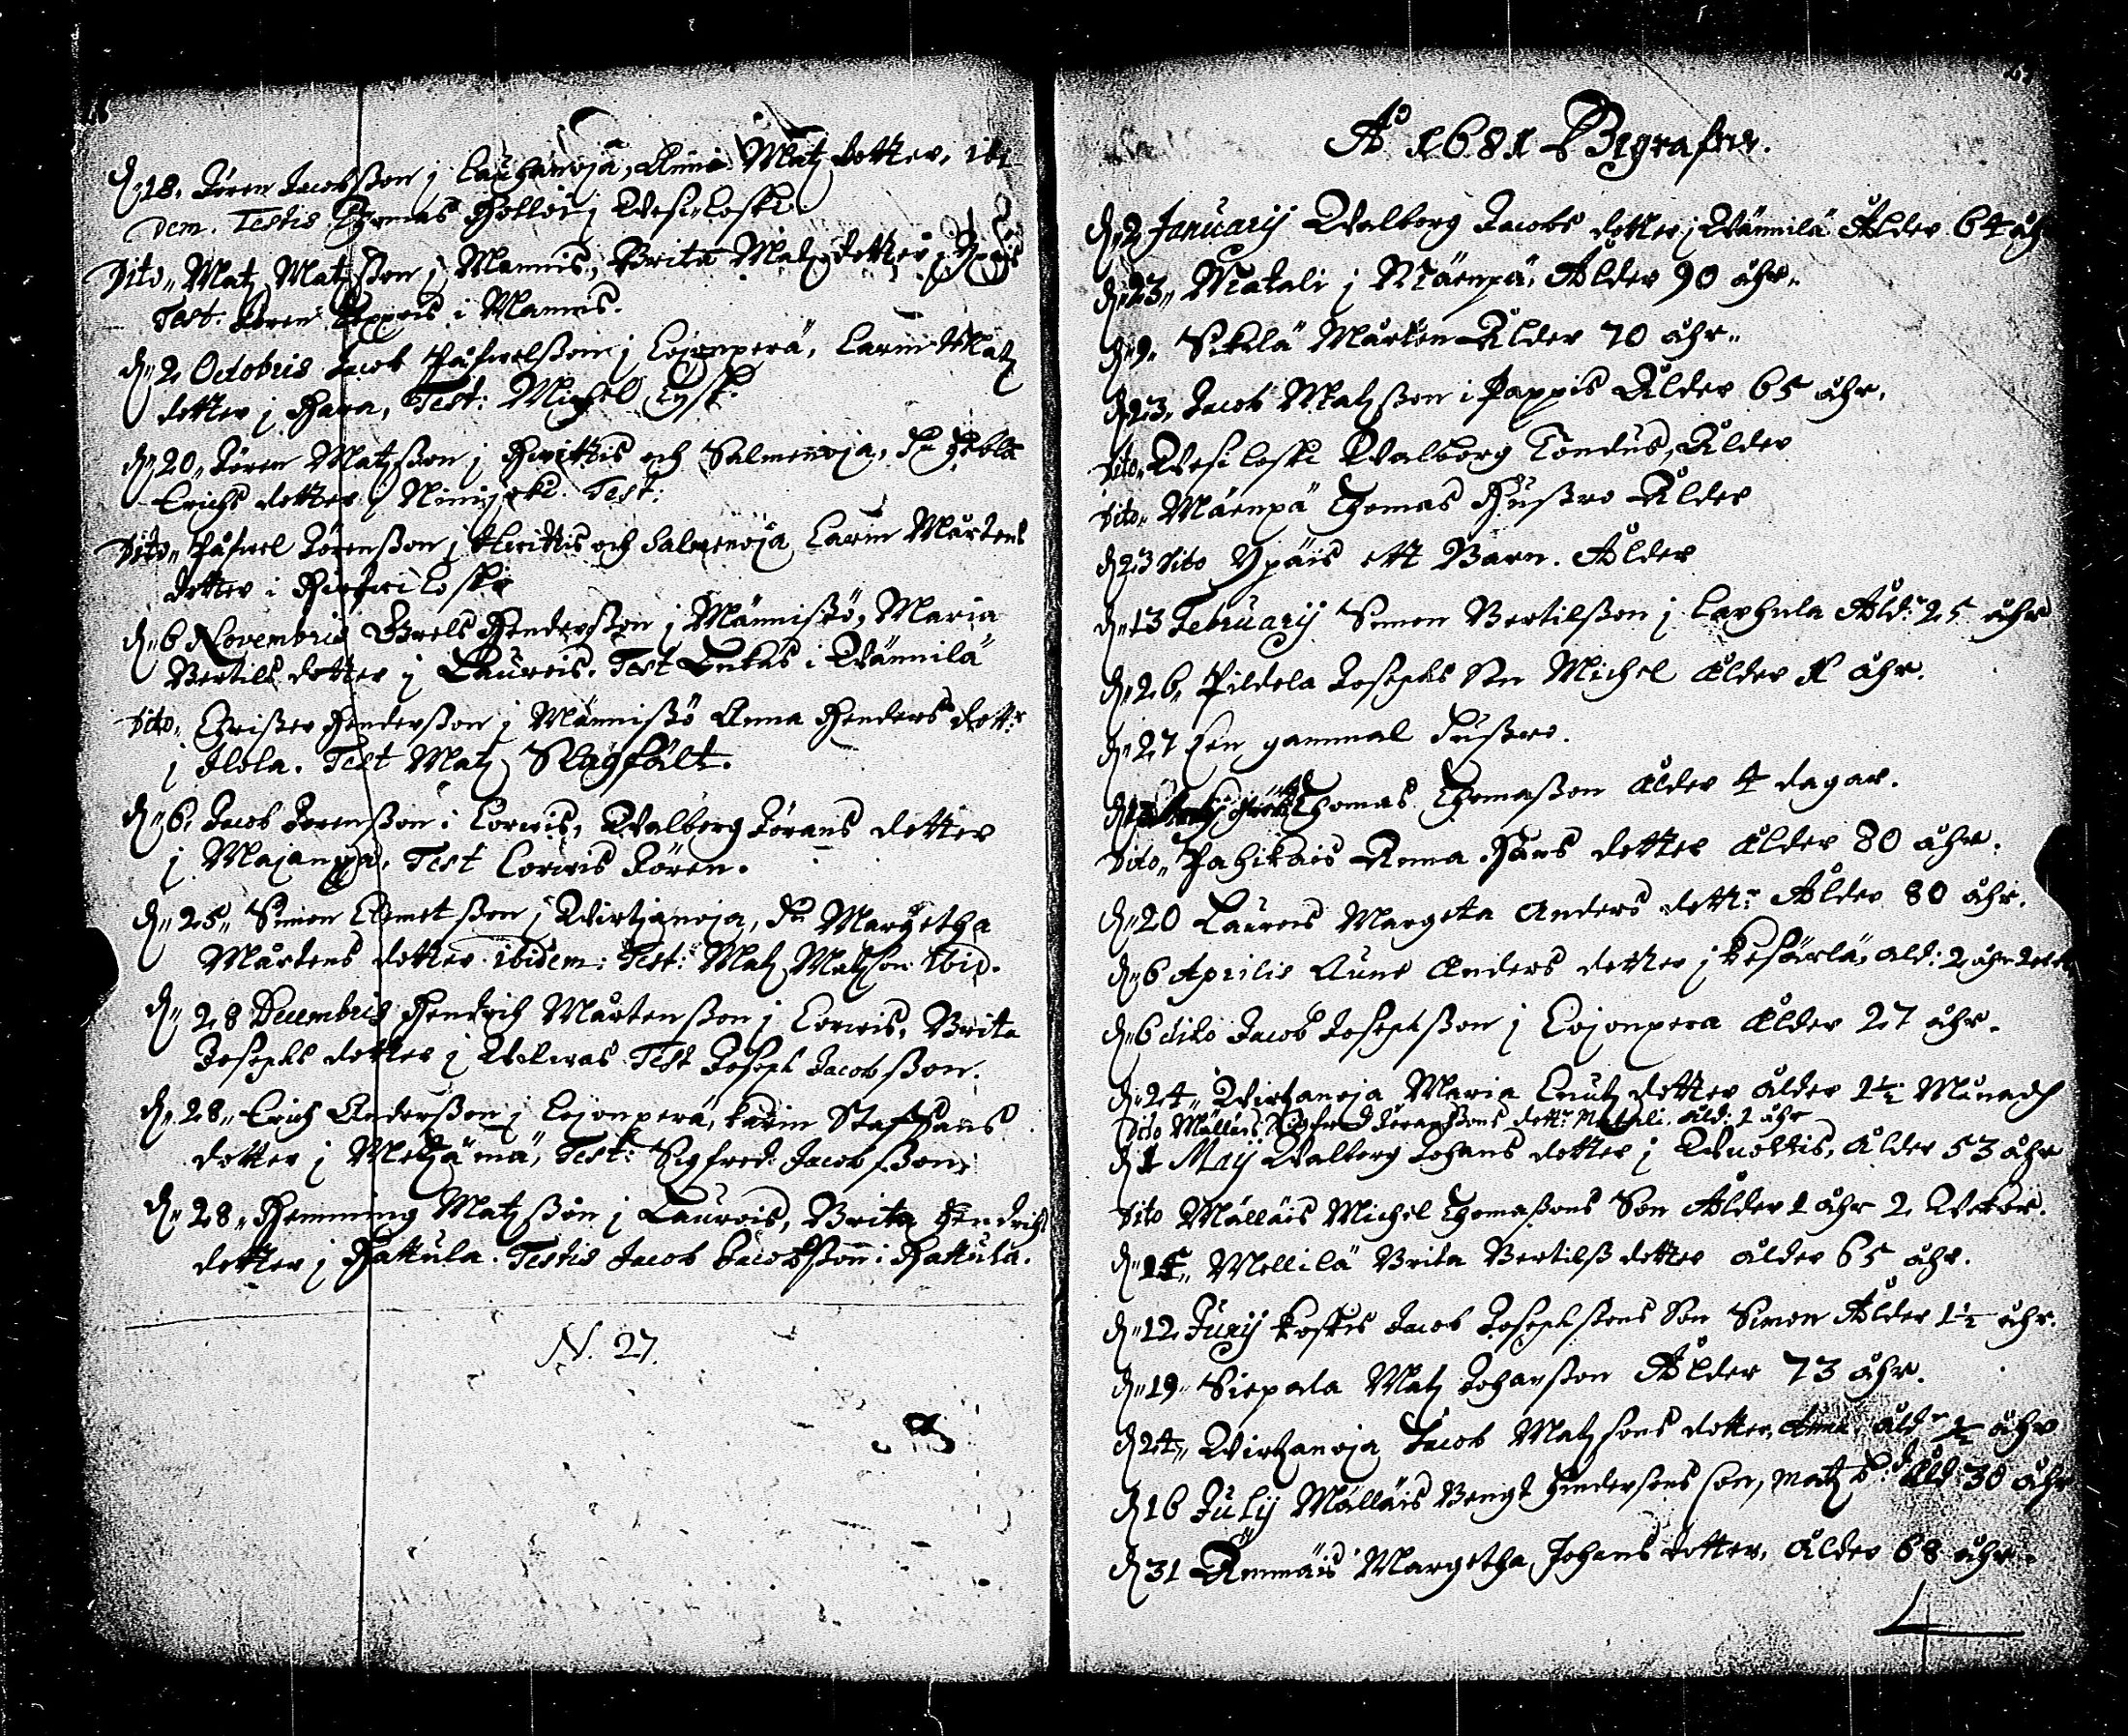 d. 18. Jören Jacobsson j Lauhanoja, Anna Matz dotter, ibi-
dem. Testis Thomas j Wesiloski
Dito. Matz Matzsson j Mannis, Brita Matz dotter j Ypäis
Test. Jören i Mannis.
d. 2 Octobris Jacob Påfwelsson j Lojonperä, Carin Matz
dotter j Hara, Test: Michel
d. 20. Jören Matzsson j Hwittis och Salmenoja, H: Hebla
Erichs dotter j Test:
Dito. Påfwel Jörensson j Hwittis och Salmenoja Carin Mårtens
dotter i
d. 6 Novembris Hendersson j Mannistö, Maria
Bertils dotter j Laurois. Test Lukas i Wännilä
Dito. Christer Hendersson j Mannistö Anna Henders dott:r
j Ilola. Test Matz Slagfält.
d. 6. Jacob Jörensson i Lorvis, Walborg Jörans dotter
j Majanpä, Test Lorvis Jören.
d. 25. Simon Clemetsson j Wirtzanoja, H: Margetha
Mårtens dotter ibidem: Test: Matz Matzson ibid.
d. 28 Decembris Hendrich Mårtensson j Lorvis, Brita
Josephs dotter j Test Joseph Jacobsson.
d. 28. Erich Andersson j Lojonperä, Karin Staffans
dotter j Metzämä, Test: Sigfred Jacobsson
d. 28. Hemming Matzsson j Laurois, Brita Hendrichs
dotter j Hattula. Testis Jacob Jacobsson i Hattula.
N. 27.
A:o 1681 Begrafne.
d. 2 Januarij Walborg Jacobs dotter j Wännilä Ålder 64 åh
d. 23. Matali j Mäenpä, Ålder 90 åhr.
d. 9. Sikilä Mårten Ålder 70 åhr.
d. 23. Jacob Matzsson i Pappis Ålder 65 åhr.
Dito. Wesiloski Walborg Ålder
Dito. Mäenpä Thomas Hustro Ålder
d. 23 dito Ypäis ett Barn. Ålder
d. 13 Februarij Simon Bertilsson j Åld:r 25 åhr
d. 26. Josephs Son Michel Ålder 1 åhr.
d. 27 een gammal Hustro.
Thomas Thomasson Ålder 4 dagar.
Dito. Pahikais Anna Hans dotter Ålder 80 åhr.
d. 20 Laurois Margeta Anders dott:r Ålder 80 åhr.
d. 6 Aprilis Anna Anders dotter j Ald: 2 åhr
d. 6 dito Jacob Josephsson j Lojonpera Ålder 27 åhr.
d. 24. Wirtzanoja Maria Knutz dotter ålder 1½ Månadh
Dito Mälläis Sigfred Jöranssons dott:r Matali. Åld: 1 åhr
d. 1 Maij Walborg Johans dotter j Wuoltis, Ålder 53 åhr
Dito Mälläis Michel Thomassons Son Ålder 1 åhr 2 Wekor.
d. 15. Mellilä Brita Bertilss dotter ålder 65 åhr.
d. 12 Junij Koskis Jacob Josephssons Son Simon Ålder 1½ åhr.
d. 19. Siepala Matz Johansson Ålder 73 åhr.
d. 24. Wirtzanoja Jacob Matzsons dotter, Anna Åld:r ½ åhr
d. 16 Julij Mälläis Bengt Hindersons son, Matz Åld: 30 åhr
d. 31 Ämmäis Margetha Johans dotter, Ålder 68 åhr.